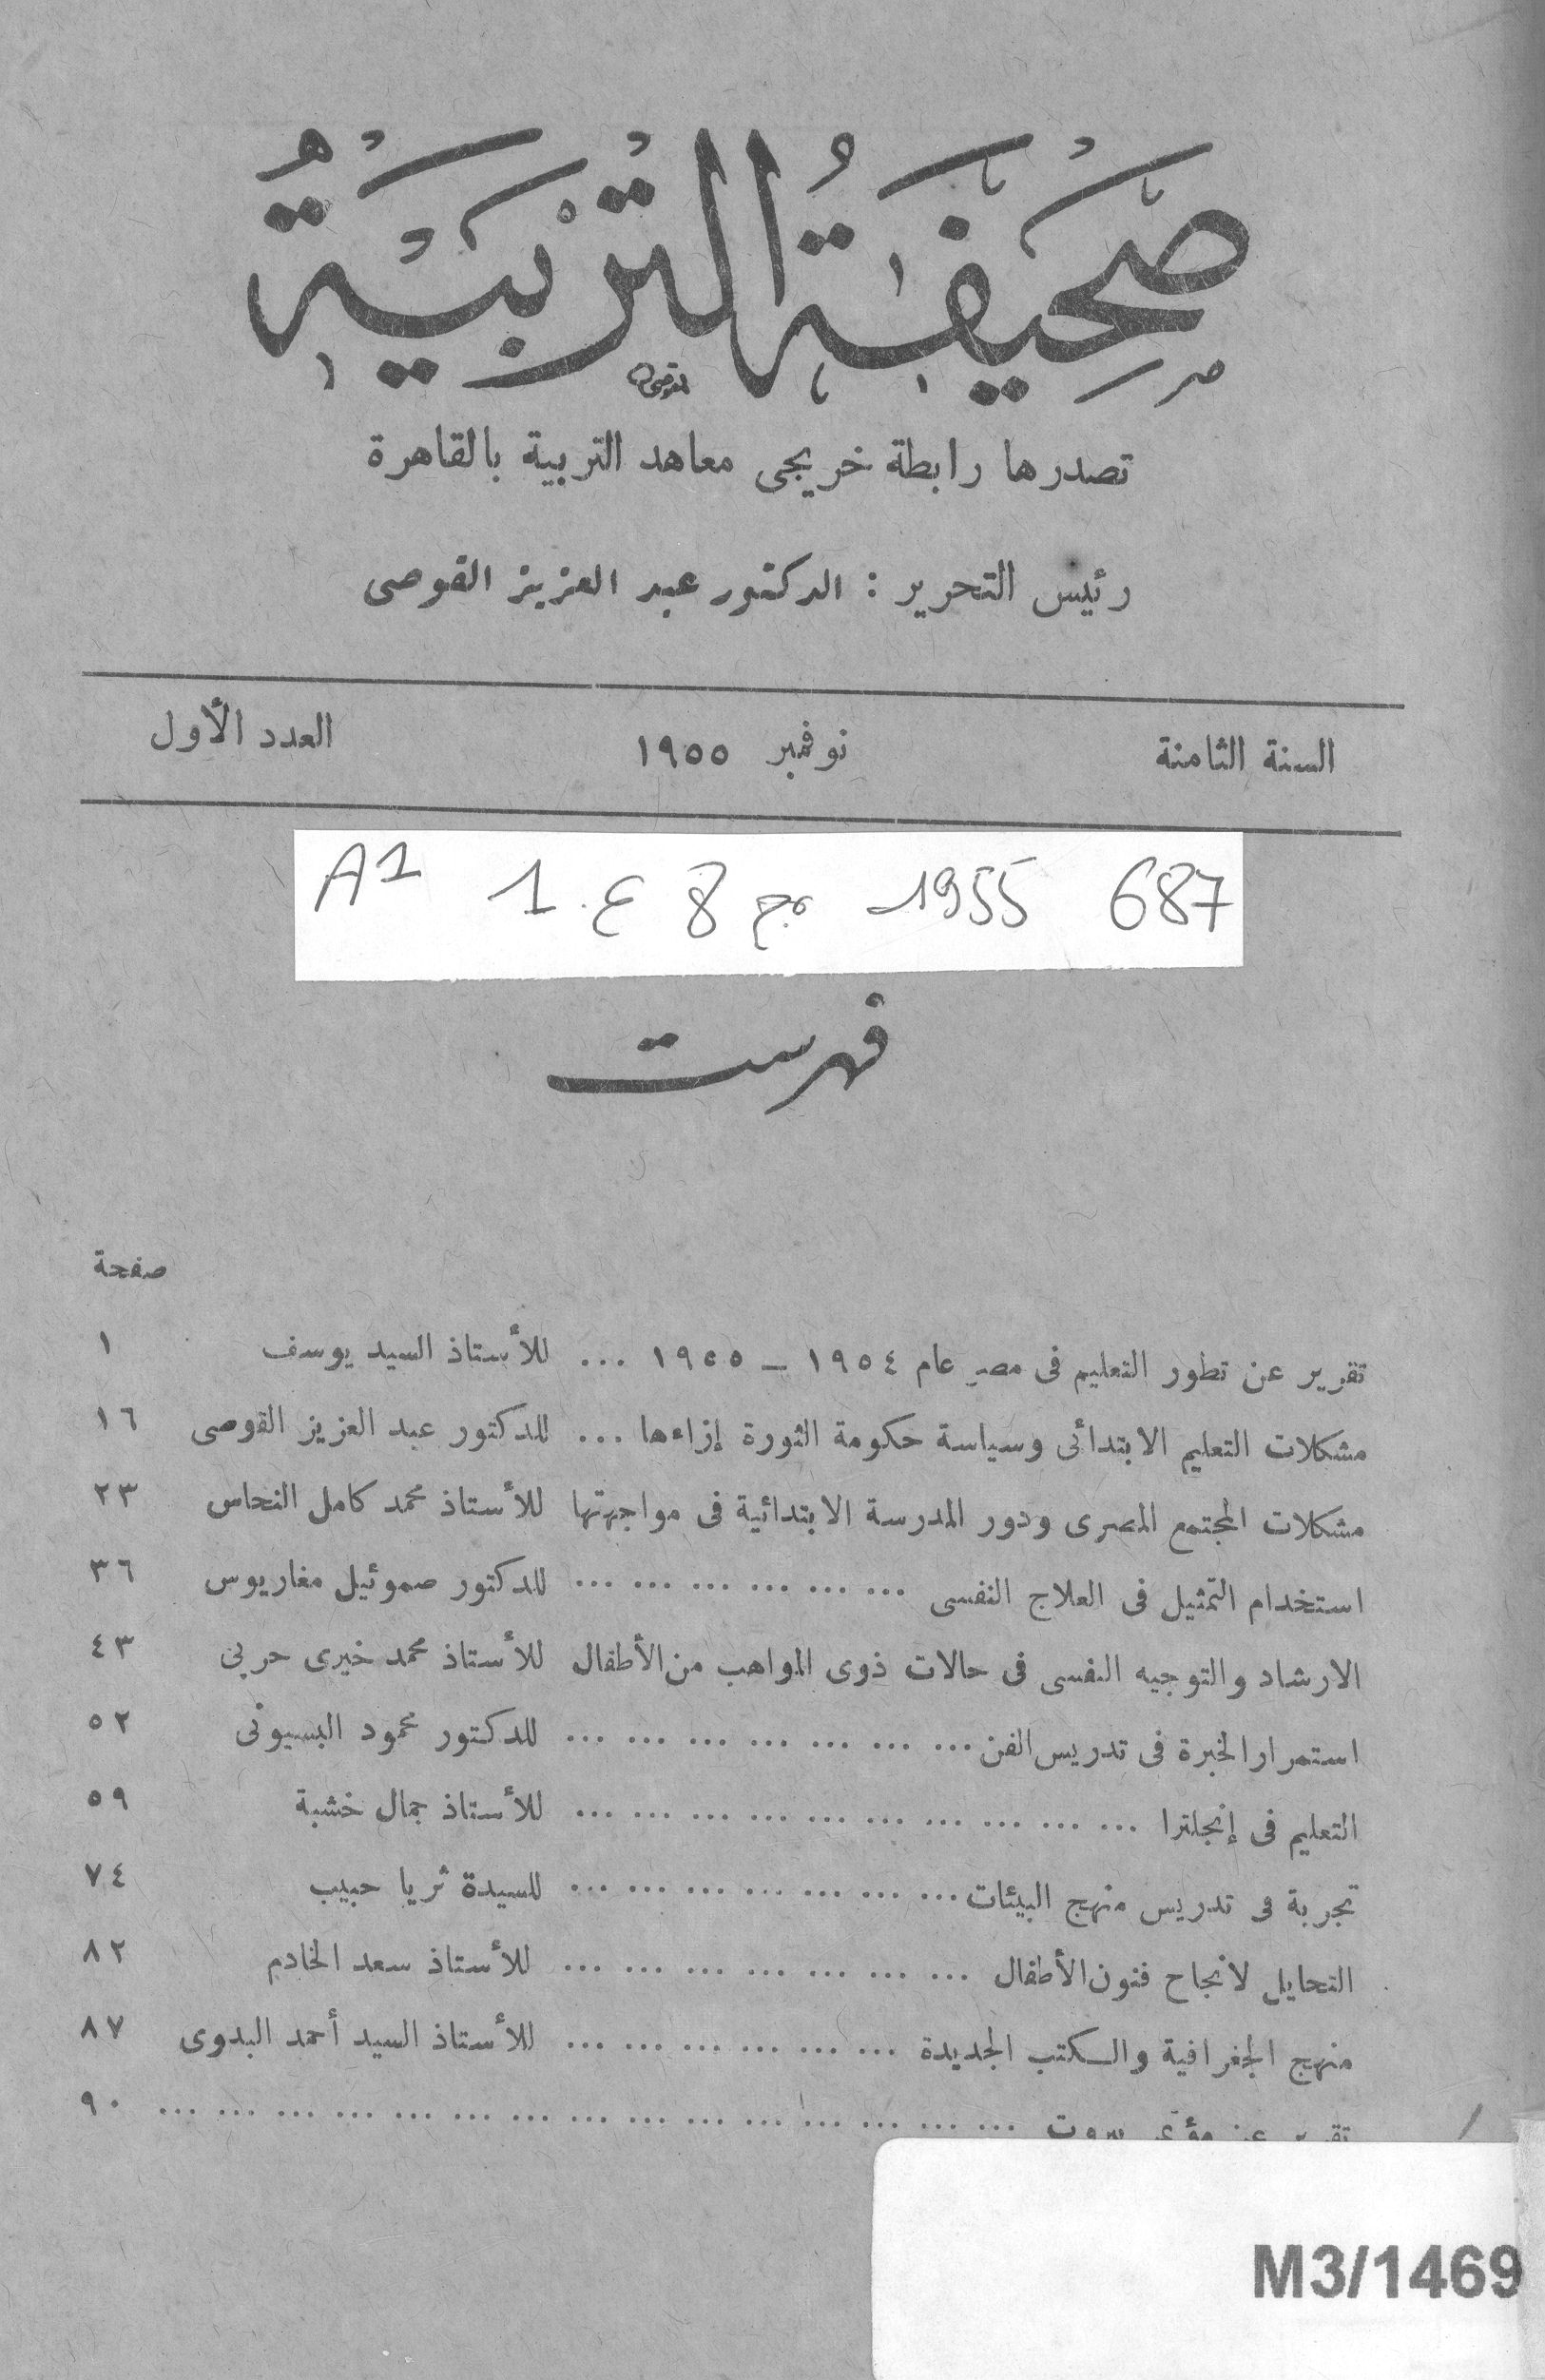 صَحِيفَةُ التَّرْبِيَةِ
تصدرها رابطة خريجى معاهد التربية بالقاهرة
رئيس التحرير : الدكتور عبد العزيز القوصى
السنة الثامنة نوفمبر ١٩٥٥ العدد الأول
687 1955 مج 8 ع. 1 A1
فهرست
صفحة
تقرير عن تطور التعليم فى مصر عام ١٩٥٤ – ١٩٥٥ ... للأستاذ السيد يوسف ١
مشكلات التعليم الابتدائى وسياسة حكومة الثورة إزاءها ... للدكتور عبد العزيز القوصى ١٦
مشكلات المجتمع المصرى ودور المدرسة الابتدائية فى مواجهتها للأستاذ محمد كامل النحاس ٢٣
استخدام التمثيل فى العلاج النفسى ... ... ... ... ... ... للدكتور صموئيل مغاريوس ٣٦
الارشاد والتوجيه النفسى فى حالات ذوى المواهب من الأطفال للأستاذ محمد خيرى حربى ٤٣
استمرار الخبرة فى تدريس الفن ... ... ... ... ... ... ... للدكتور محمود البسيونى ٥٢
التعليم فى إنجلترا ... ... ... ... ... ... ... ... ... ... للأستاذ جمال خشبة ٥٩
تجربة فى تدريس منهج البيئات ... ... ... ... ... ... ... للسيدة ثريا حبيب ٧٤
التحايل لانجاح فنون الأطفال ... ... ... ... ... ... ... للأستاذ سعد الخادم ٨٢
منهج الجغرافية والكتب الجديدة ... ... ... ... ... ... للأستاذ السيد أحمد البدوى ٨٧
تقرير عن مؤتمر بيروت ... ... ... ... ... ... ... ... ... ... ... ... ... ... ... ٩٠
M3/1469